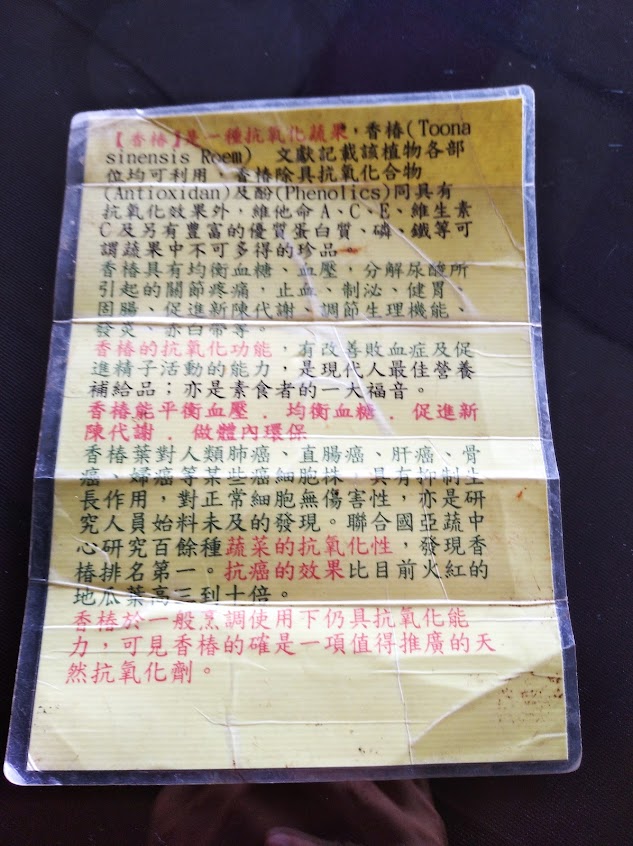 【香椿】是一種抗氧化蔬果，香椿(Toona
sinensis Roem)　文獻記載該植物各部
位均可利用，香椿除具抗氧化合物
(Antioxidan)及酚(Phenolics)同具有
抗氧化效果外，維他命A、C、E、維生素
C及另有豐富的優質蛋白質、磷、鐵等可
謂蔬果中不可多得的珍品。
香椿具有均衡血糖、血壓，分解尿酸所
引起的關節疼痛，止血、制泌、健胃、
固腸、促進新陳代謝、調節生理機能、
發炎、赤白帶等。
香椿的抗氧化功能，有改善敗血症及促
進精子活動的能力，是現代人最佳營養
補給品；亦是素食者的一大福音。
香椿能平衡血壓．均衡血糖．促進新
陳代謝．做體內環保
香椿葉對人類肺癌、直腸癌、肝癌、骨
癌、婦癌等某些癌細胞株，具有抑制生
長作用，對正常細胞無傷害性，亦是研
究人員始料未及的發現。聯合國亞蔬中
心研究百餘種蔬菜的抗氧化性，發現香
椿排名第一。抗癌的效果比目前火紅的
地瓜葉高三到十倍。
香椿於一般烹調使用下仍具抗氧化能
力，可見香椿的確是一項值得推廣的天
然抗氧化劑。